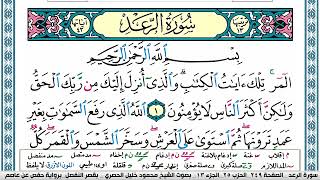 سُورَةُ الرَّعْدِ
بِسْمِ اللَّهِ الرَّحْمَٰنِ الرَّحِيمِ
الٓمٓرۚ تِلْكَ ءَايَٰتُ الْكِتَٰبِۗ وَالَّذِىٓ أُنزِلَ إِلَيْكَ مِن رَّبِّكَ الْحَقُّ
وَلَٰكِنَّ أَكْثَرَ النَّاسِ لَا يُؤْمِنُونَ ١ اللَّهُ الَّذِى رَفَعَ السَّمَٰوَٰتِ بِغَيْرِ
عَمَدٍ تَرَوْنَهَاۖ ثُمَّ اسْتَوَىٰ عَلَى الْعَرْشِۖ وَسَخَّرَ الشَّمْسَ وَالْقَمَرَۖ كُلٌّ
سورة الرعد الصفحة ٢٤٩ الحزب ٢٥ الجزء ١٣ بصوت الشيخ محمود خليل الحصري بقصر المنفصل برواية حفص عن عاصم